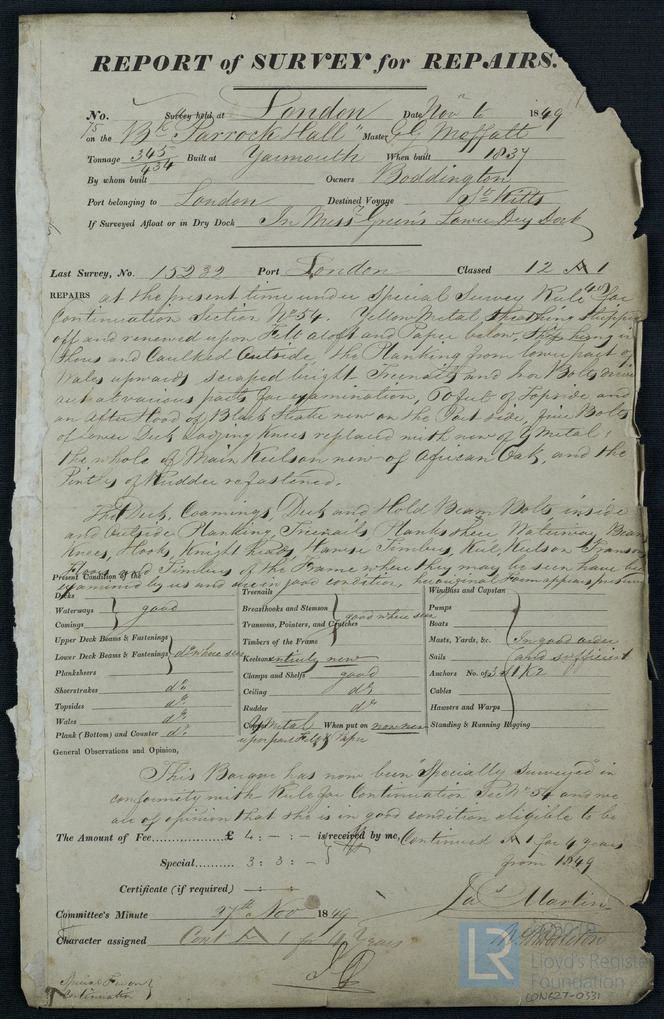 REPORT of SURVEY for REPAIRS.
No. Survey held at London Date Nov 6 1849
75 on the Bk "Parrock Hall" Master G G Moffatt
Tonnage 345 Built at Yarmouth When built 1837
434
By whom built Owners Boddington
Port belonging to London Destined Voyage St Kitts
If Surveyed Afloat or in Dry Dock In Messrs Green's Lower Dry Dock
Last Survey, No. 15232 Port London Classed 12 A 1
REPAIRS at the present time under Special Survey Rule for
Continuation Section No 54. Yellow Metal Sheathing stripped
off and renewed upon Felt aloft and Paper below, Ship hung in
Shores and Caulked Outside, the Planking from lower part of
Wales upwards, scraped bright Treenails and Iron Bolts driven
out at various parts for examination, 60 feet of Topside and
an After Hood of Black Strake new on the Port side, five Bolts
of Lower Deck Lodging Knees replaced with new of Y Metal,
the whole of Main Keelson new of African Oak, and the
Pintles of Rudder refastened.
The Deck, Coamings, Deck and Hold Beam Bolts inside
and Outside Planking, Treenails Planksheer Waterway Beam
Knees, Hooks, Knight heads, Hawse Timbers, Keel, Keelson Transom
Floors and Timbers of the Frame where they may be seen have been
examined by us and are in good condition, her original Form appears preserved
Present Condition of the
Decks
Waterways good
Comings
Upper Deck Beams & Fastenings
Lower Deck Beams & Fastenings do where seen
Planksheers
Sheerstrakes do
Topsides do
Wales do
Plank (Bottom) and Counter do
Treenails
Breasthooks and Stemson good where seen
Transons, Pointers, and Crutches
Timbers of the Frame
Keelson entirely new
Clamps and Shelfs good
Ceiling do
Rudder do
Copper Y Metal When put on now new
upon part Felt & Paper
Windlass and Capstan
Pumps
Boats
Masts, Yards, &c. In good order
Sails and sufficient
Anchors No. of 3 & 1 K 2
Cables
Hawsers and Warps
Standing & Running Rigging
General Observations and Opinion,
This Barque has now been "Specially Surveyed" in
conformity with Rule for Continuation Sec No 54 and we
are of opinion that she is in good condition eligible to be
The Amount of Fee £ 4 : - : - is received by me, Continued A 1 for 4 years
Special 3 : 3 : - from 1849
Certificate (if required) - : -
Jas Martin
Committee's Minute 27th Nov 1849
Character assigned Cont A 1 for 4 Years
Special Survey
Continuation
LR
Lloyd's Register
Foundation
LON627-0331